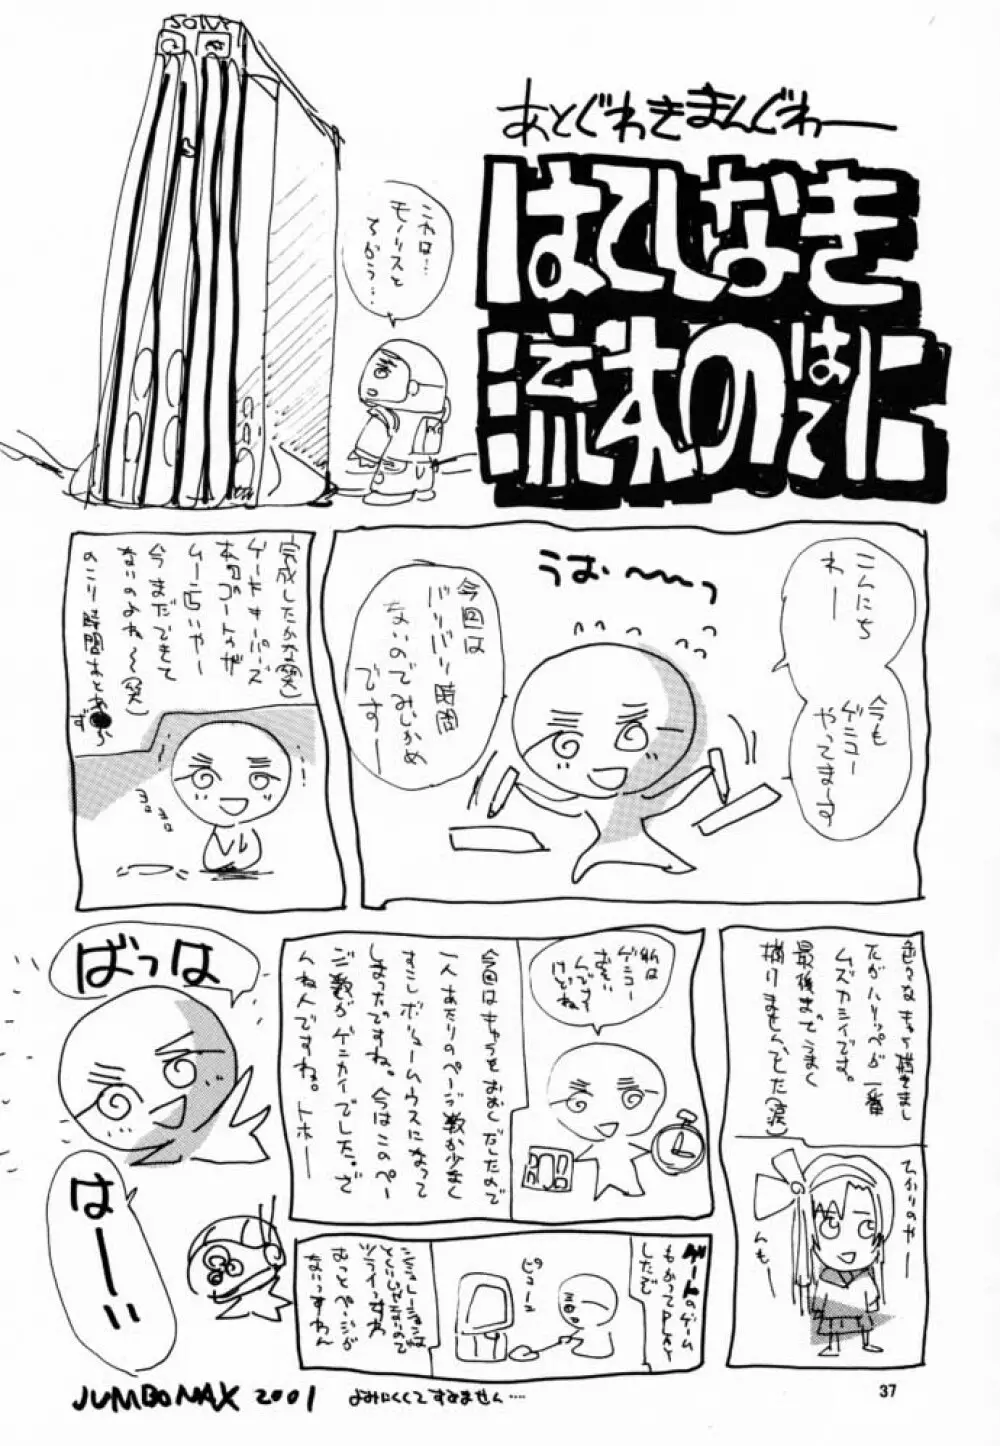 あとぐわきまんぐわー
はてしなき
流れのはてに
これは…
モノリスと
ちがう…
こんにち
わー
今も
ゲンコー
やってます
うお〜〜っ
今回は
バリバリ時間
ないのでみじかめ
でーす
完成したかな(笑)
ゲートキーパーズ
ないのよね〜(笑)
今まだできて
のこり時間あとあ
ヨロ
ヨロ
色々なキャラ描きまし
たがハリッペが一番
ムズカシイです。
最後までうまく
描けませんでした(涙)
ひかりのやー
んもー
私は
ゲンコー
おそい
んです
けどね
今回はキャラをおおくだしたので
一人あたりのページ数が少なく
すこしボリュームウスになって
しまったですね。今はこのペー
ジ数がゲンカイでした。ざ
んねんですね。トホー
ばっは
はーい
ゲートのゲーム
もかってPLAY
しただで
ピコーン
シミュレーションは
ツライっすわ
もっとページが
ないっすわん
JUMBOMAX 2001
よみにくくてすみません….
37